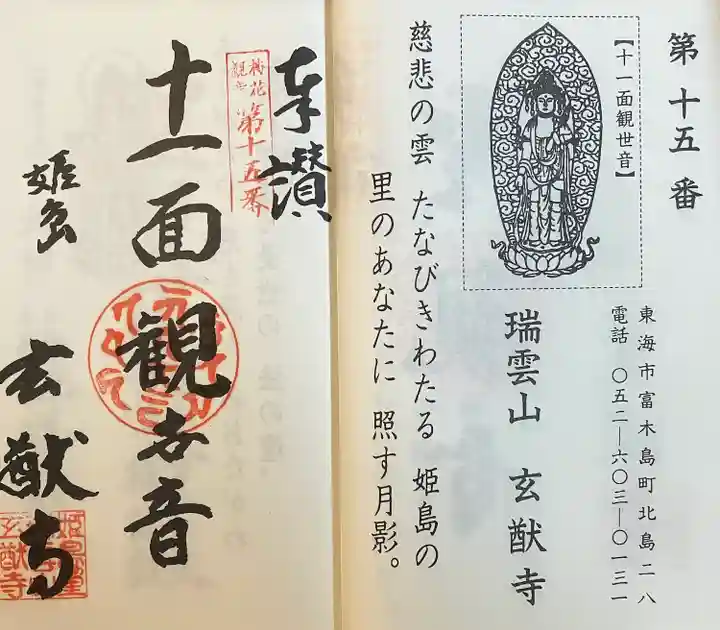 第十五番
【十一面観世音】
東海市富木島町北島二八
電話 〇五二―六〇三―〇一三一
瑞雲山 玄猷寺
慈悲の雲 たなびきわたる 姫島の
里のあなたに 照す月影。
奉讃
観音
第十五番
十一面観世音
姫島
玄猷寺